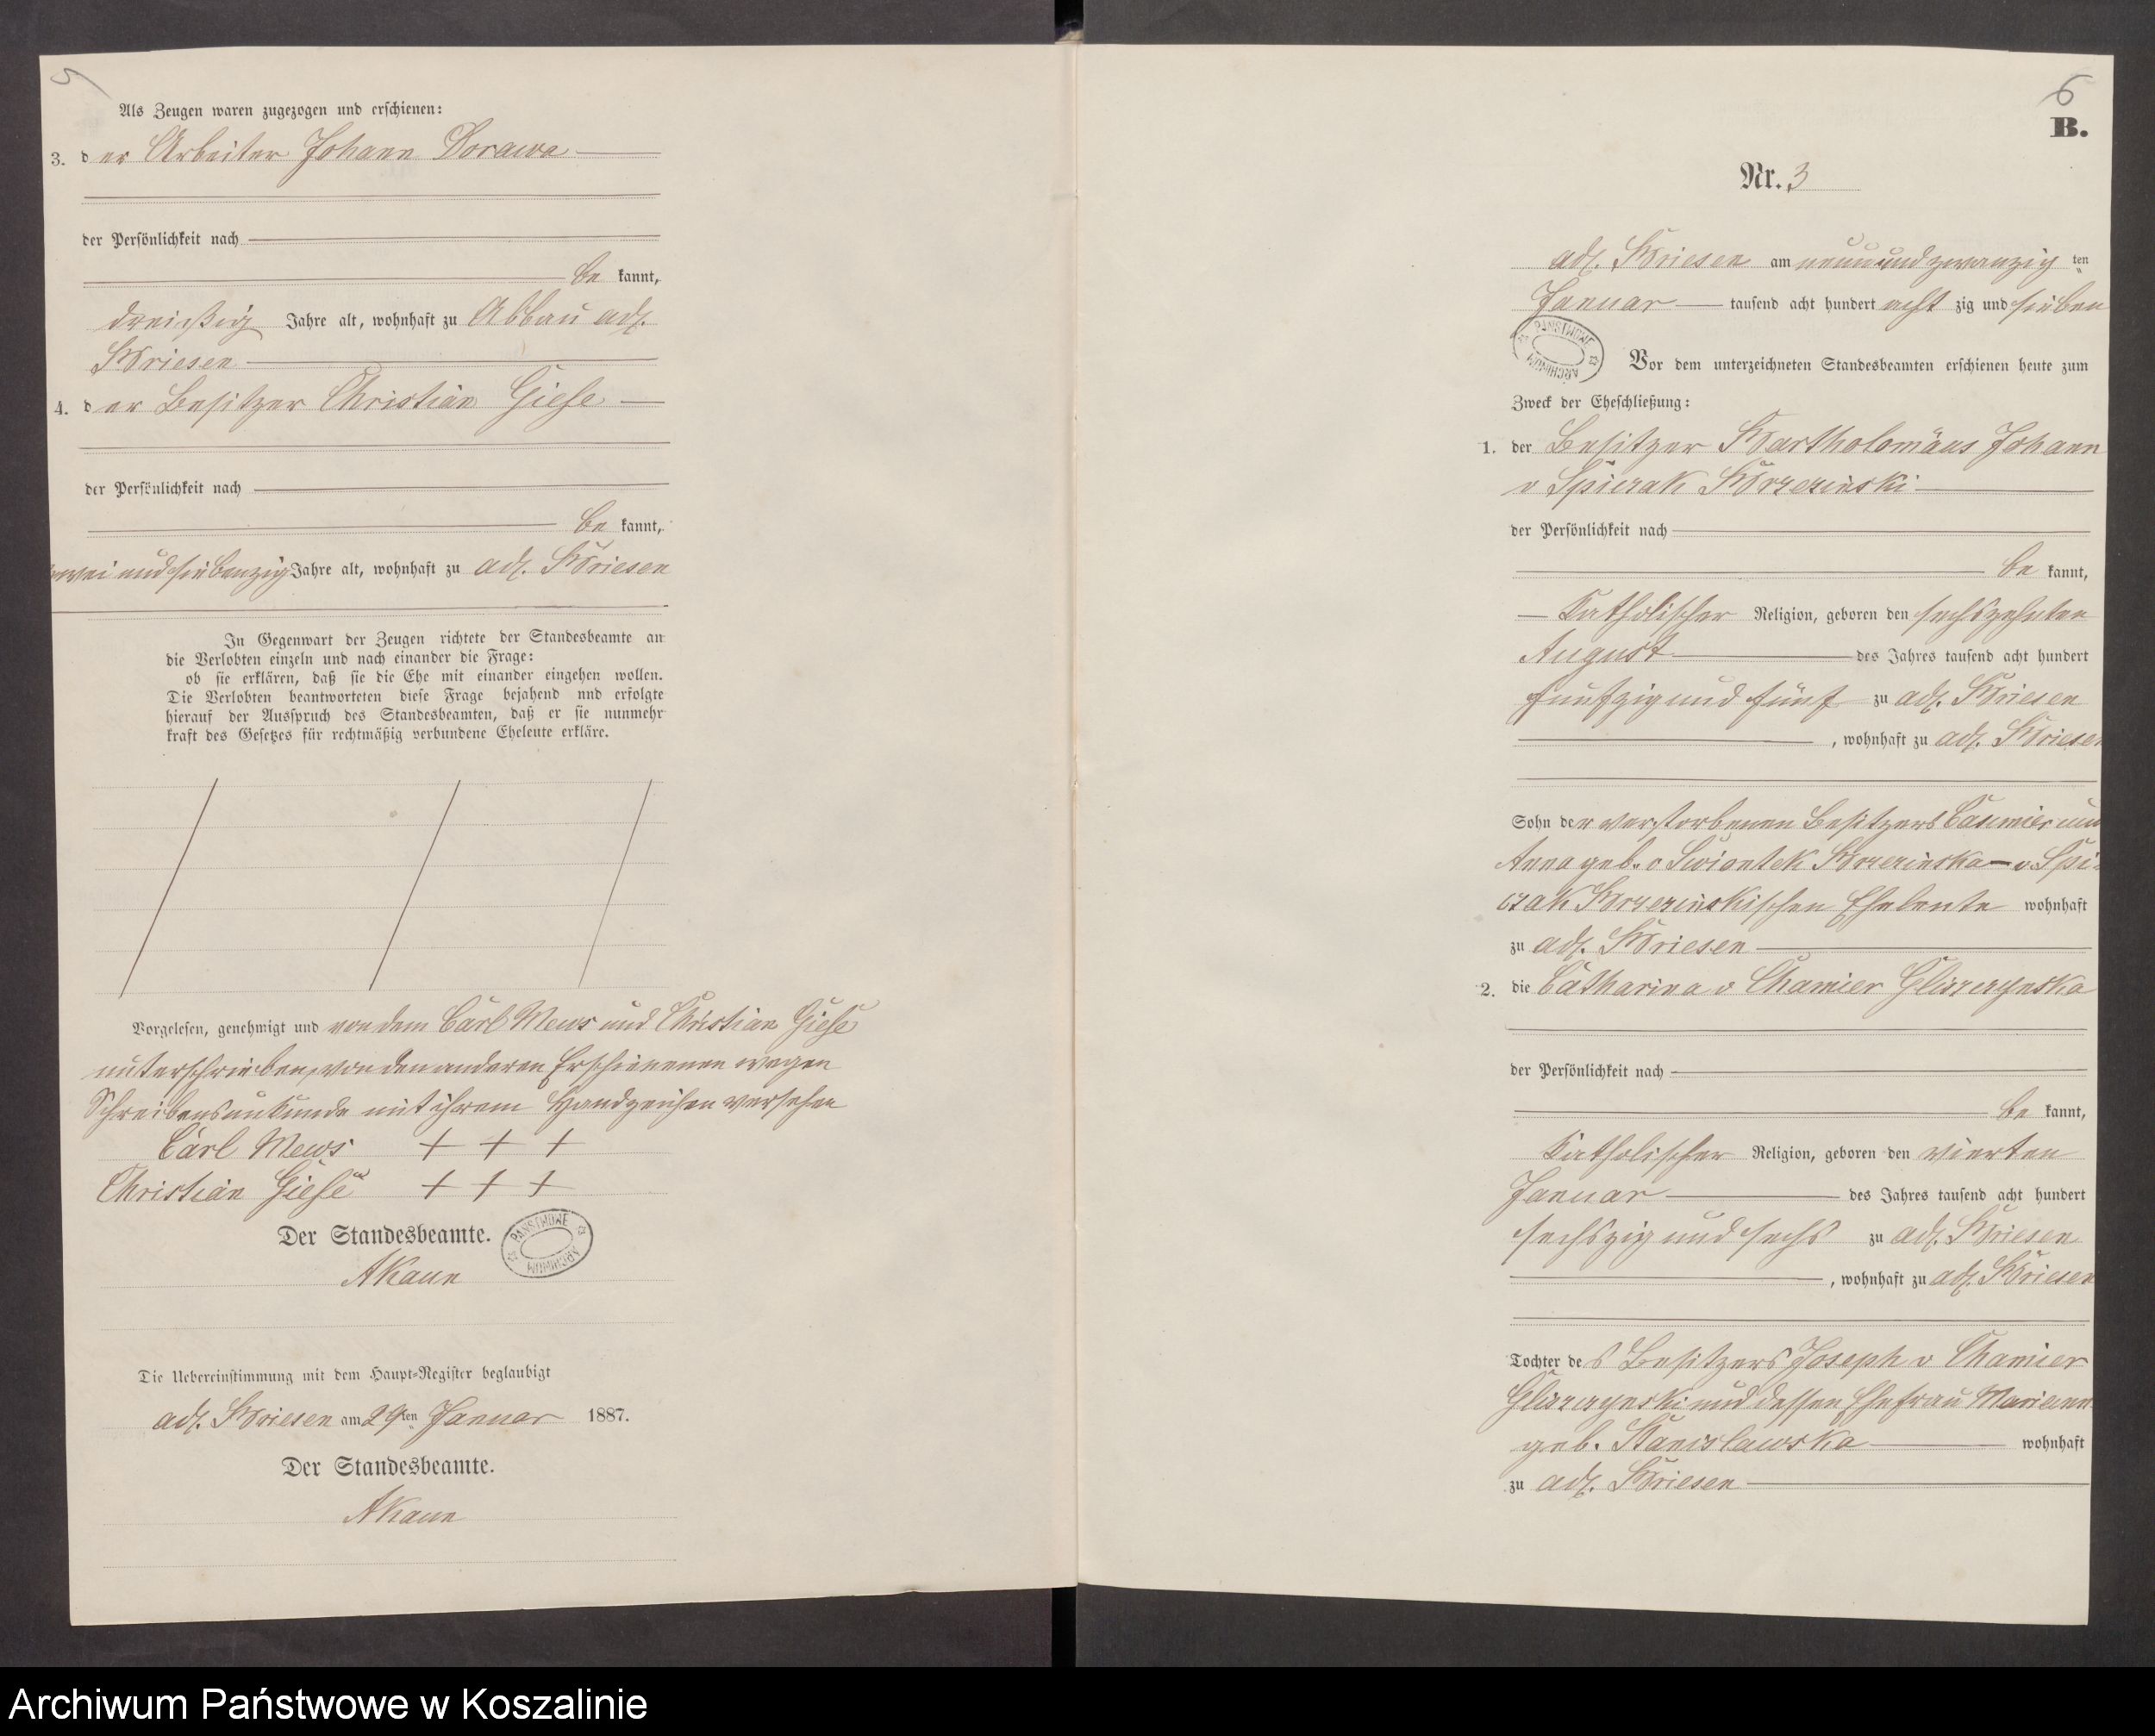 5
Als Zeugen waren zugezogen und erschienen:
3. der Arbeiter Johann Dorawa
der Persönlichkeit nach
be kannt,
dreißig Jahre alt, wohnhaft zu Abbau adl.
Briesen
4. der Besitzer Christian Giese
der Persönlichkeit nach
be kannt,
zwei und siebenzig Jahre alt, wohnhaft zu adl. Briesen
In Gegenwart der Zeugen richtete der Standesbeamte an
die Verlobten einzeln und nach einander die Frage:
ob sie erklären, daß sie die Ehe mit einander eingehen wollen.
Die Verlobten beantworteten diese Frage bejahend und erfolgte
hierauf der Ausspruch des Standesbeamten, daß er sie nunmehr
kraft des Gesetzes für rechtmäßig verbundene Eheleute erkläre.
Vorgelesen, genehmigt und von dem Carl Mews und Christian Giese
unterschrieben, von den anderen Erschienenen wegen
Schreibensunkunde mit ihrem Handzeichen versehen
Carl Mews + + +
Christian Giese + + +
Der Standesbeamte.
PAŃSTWOWE ARCHIWUM
AKaun
Die Uebereinstimmung mit dem Haupt-Register beglaubigt
adl. Briesen am 29ten Januar 1887.
Der Standesbeamte.
AKaun
6
B.
Nr. 3
adl. Briesen am neunundzwanzig ten
Januar tausend acht hundert acht zig und sieben
PAŃSTWOWE ARCHIWUM
Vor dem unterzeichneten Standesbeamten erschienen heute zum
Zweck der Eheschließung:
1. der Besitzer Bartholomäus Johann
v Spiczak Brzezinski
der Persönlichkeit nach
be kannt,
Katholischer Religion, geboren den sechszehnten
August des Jahres tausend acht hundert
funfzig und fünf zu adl. Briesen
, wohnhaft zu adl. Briesen
Sohn der verstorbenen Besitzers Casimier und
Anna geb. v Swiontek Brzezinska - v Spi-
czak Brzezinskischen Eheleute wohnhaft
zu adl. Briesen
2. die Catharina v Chamier Gliszczynska
der Persönlichkeit nach
be kannt,
Katholischer Religion, geboren den vierten
Januar des Jahres tausend acht hundert
sechszig und sechs zu adl. Briesen
, wohnhaft zu adl. Briesen
Tochter des Besitzers Joseph v Chamier
Gliszczynski und dessen Ehefrau Mariann
geb. Stanislawska wohnhaft
zu adl. Briesen
Archiwum Państwowe w Koszalinie